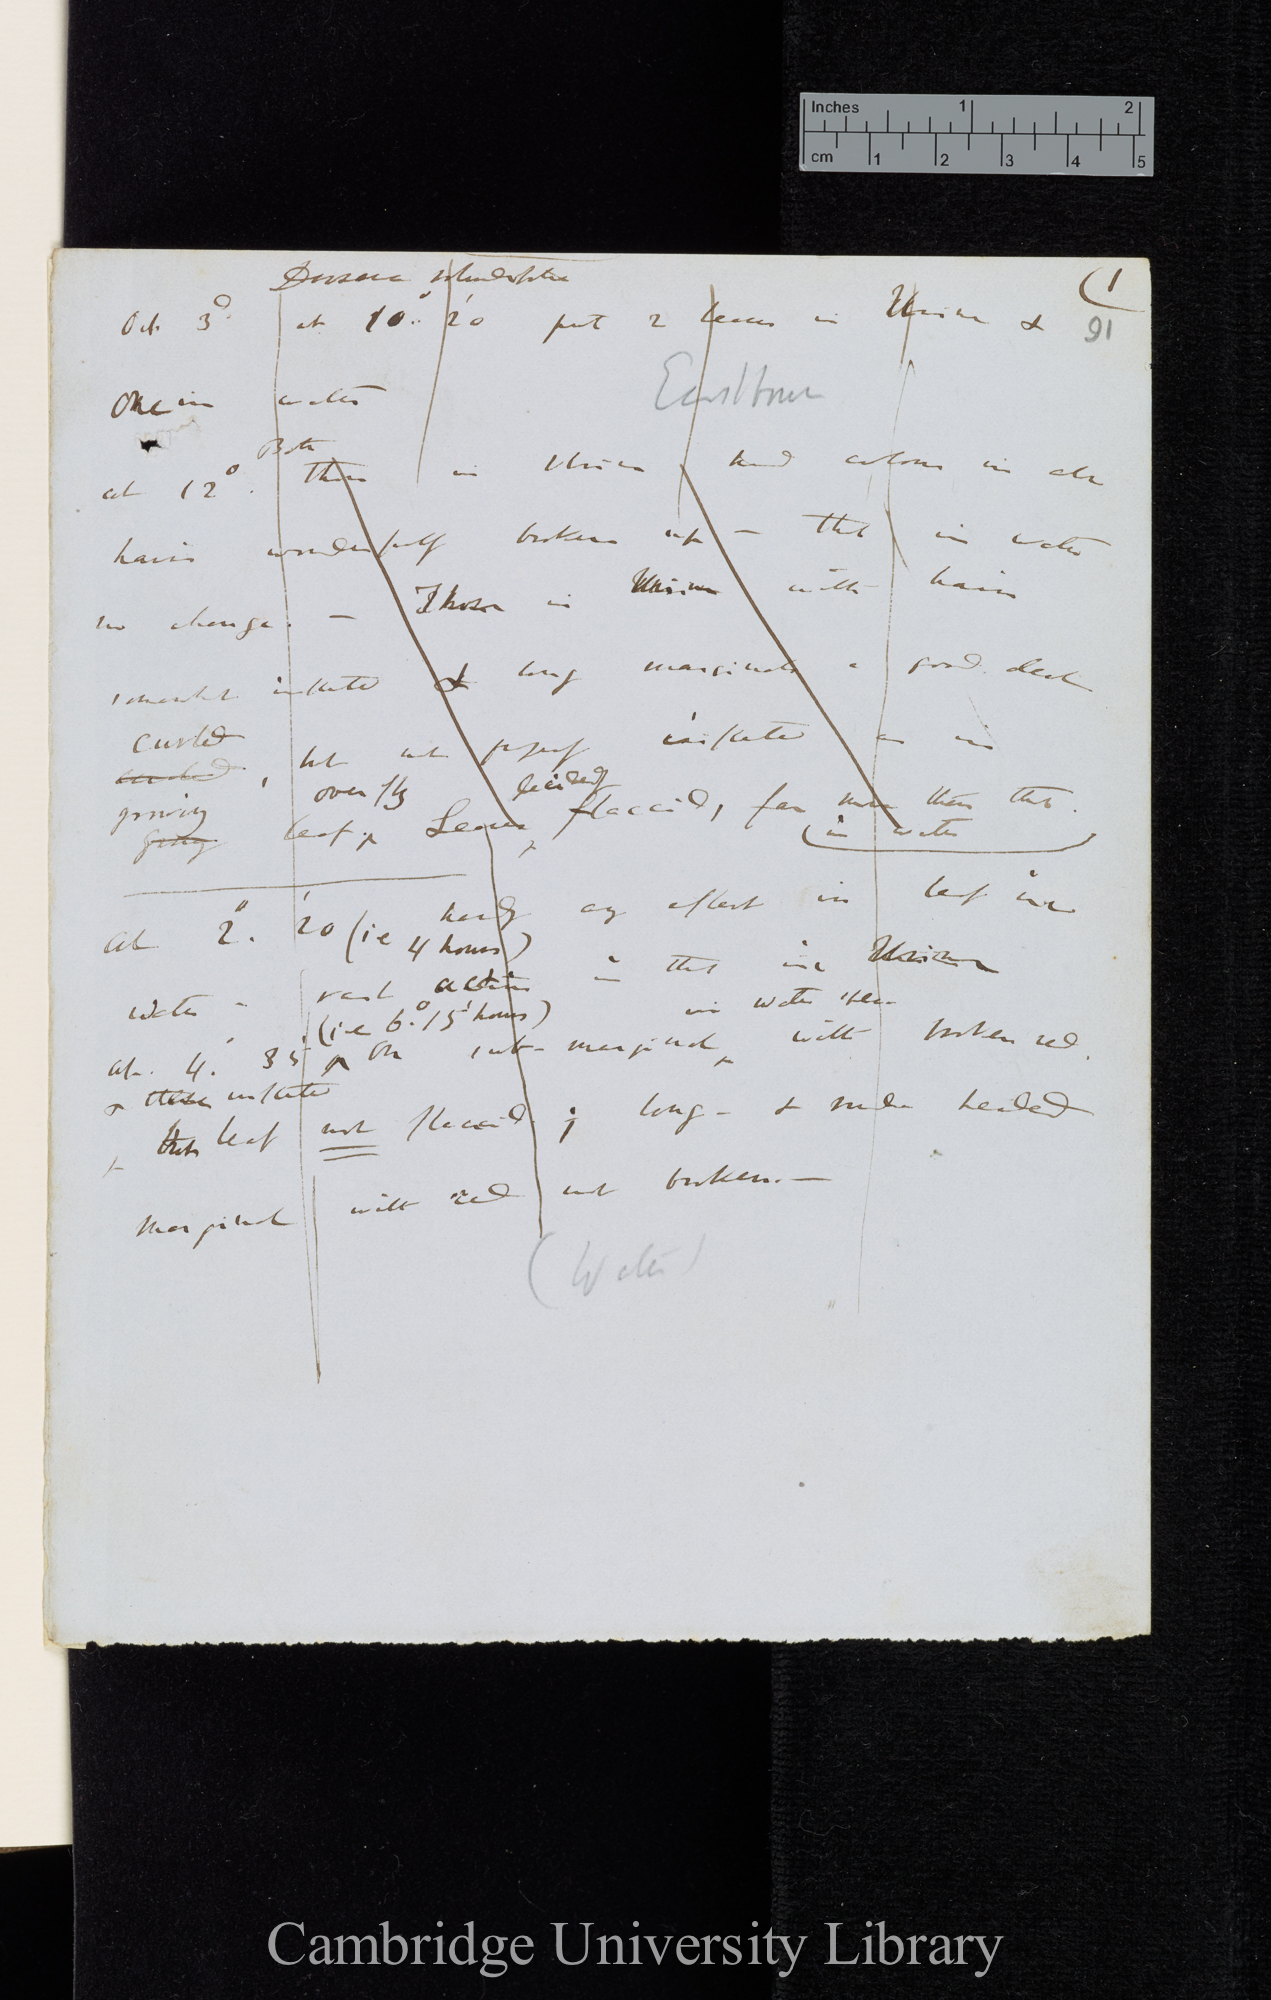 Inches 1 2
cm 1 2 3 4 5
Drosera rotundifolia
(1
91
Oct 3d. at 10°. 20' put 2 leaves in Urine &
one in water
Eastbourne
Both
at 12°. those in Urine, had colour in
hairs wonderfully broken up — that in water
no change. — Those in Urine with hairs
somewhat inflected & long marginals a good deal
curled
, but not properly inflected as in
growing over fly
leaf, Leaves flaccid, far more than that.
in water
At 2°. 20' (ie 4 hours) hardly any effect in leaf in
water – vast action in that in Urine
(ie 6°. 15' hours) in water
at. 4°. 35' sub-marginal, with broken red.
these inflected
this leaf not flaccid; long- & headed
marginal with red not broken. —
(Water)
Cambridge University Library